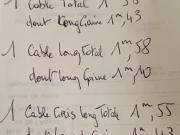 1 Cable Total 1m,58
dont long Gaine 1m,43
1 Cable long Total 1m,58
dont long Gaine 1m,40
1 Cable Gris long Total 1m,55